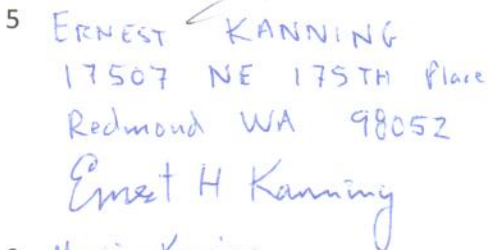 5 ERNEST KANNING
17507 NE 175TH Place
Redmond WA 98052
Ernest H Kanning